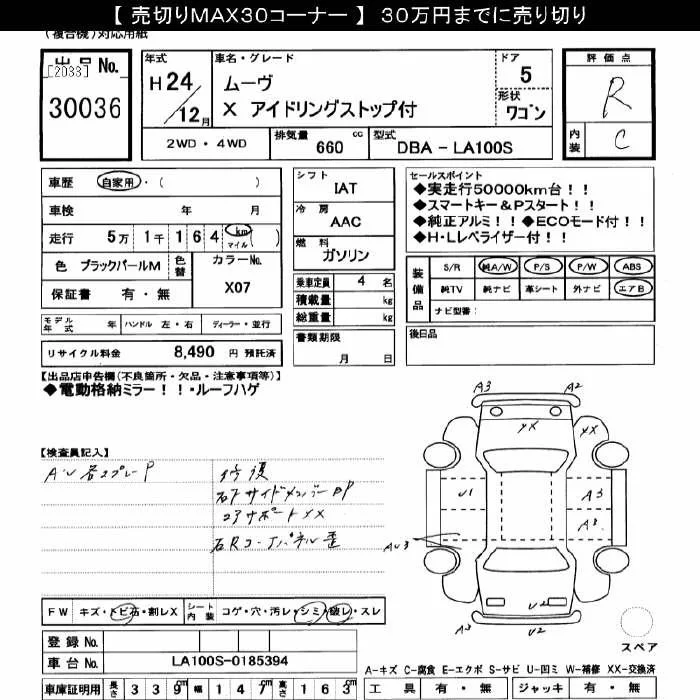 【 売切りMAX30コーナー 】 30万円までに売り切り
(複合機)対応用紙
出品 No.
[2033]
30036
年式
H 24
/12月
車名・グレード
ムーヴ
X アイドリングストップ付
ドア
5
形状
ワゴン
2WD ・ 4WD
排気量
660 cc
型式
DBA - LA100S
評価点
R
内装
C
車歴 自家用・( )
車検 年 月
走行 5万 1千 1 6 4 km マイル ( )
色 ブラックパールM 色替 カラーNo. X07
保証書 有・無
モデル年式 年 ハンドル 左・右 ディーラー・並行
リサイクル料金 8,490 円 預託済
シフト
IAT
冷房
AAC
燃料
ガソリン
乗車定員 4 名
積載量 kg
総重量 kg
書類期限
月 日
セールスポイント
◆実走行50000km台!!
◆スマートキー&Pスタート!!
◆純正アルミ!!◆ECOモード付!!
◆H・Lレベライザー付!!
装備品
S/R 純A/W P/S P/W ABS
純TV 純ナビ 革シート 外ナビ エアB
ナビ型番:
後日品
【出品店申告欄(不良箇所・欠品・注意事項等)】
◆電動格納ミラー!!・ルーフハゲ
【検査員記入】
AU各スプレーP
修復
右Fサイドメンバー
コアサポートXX
右Rコーナパネル歪
A3
A2
YX
XX
U1
A3
A2
AU3
U2
A3
U2
スペア
FW キズ・トビ石・割レX シート内装 コゲ・穴・汚レ・シミ・破レ・スレ
登録 No.
車台 No. LA100S-0185394
車庫証明用 長さ 3 3 9 cm 幅 1 4 7 cm 高さ 1 6 3 cm
A-キズ C-腐食 E-エクボ S-サビ U-凹ミ W-補修 XX-交換済
工具 有・無 ジャッキ 有・無